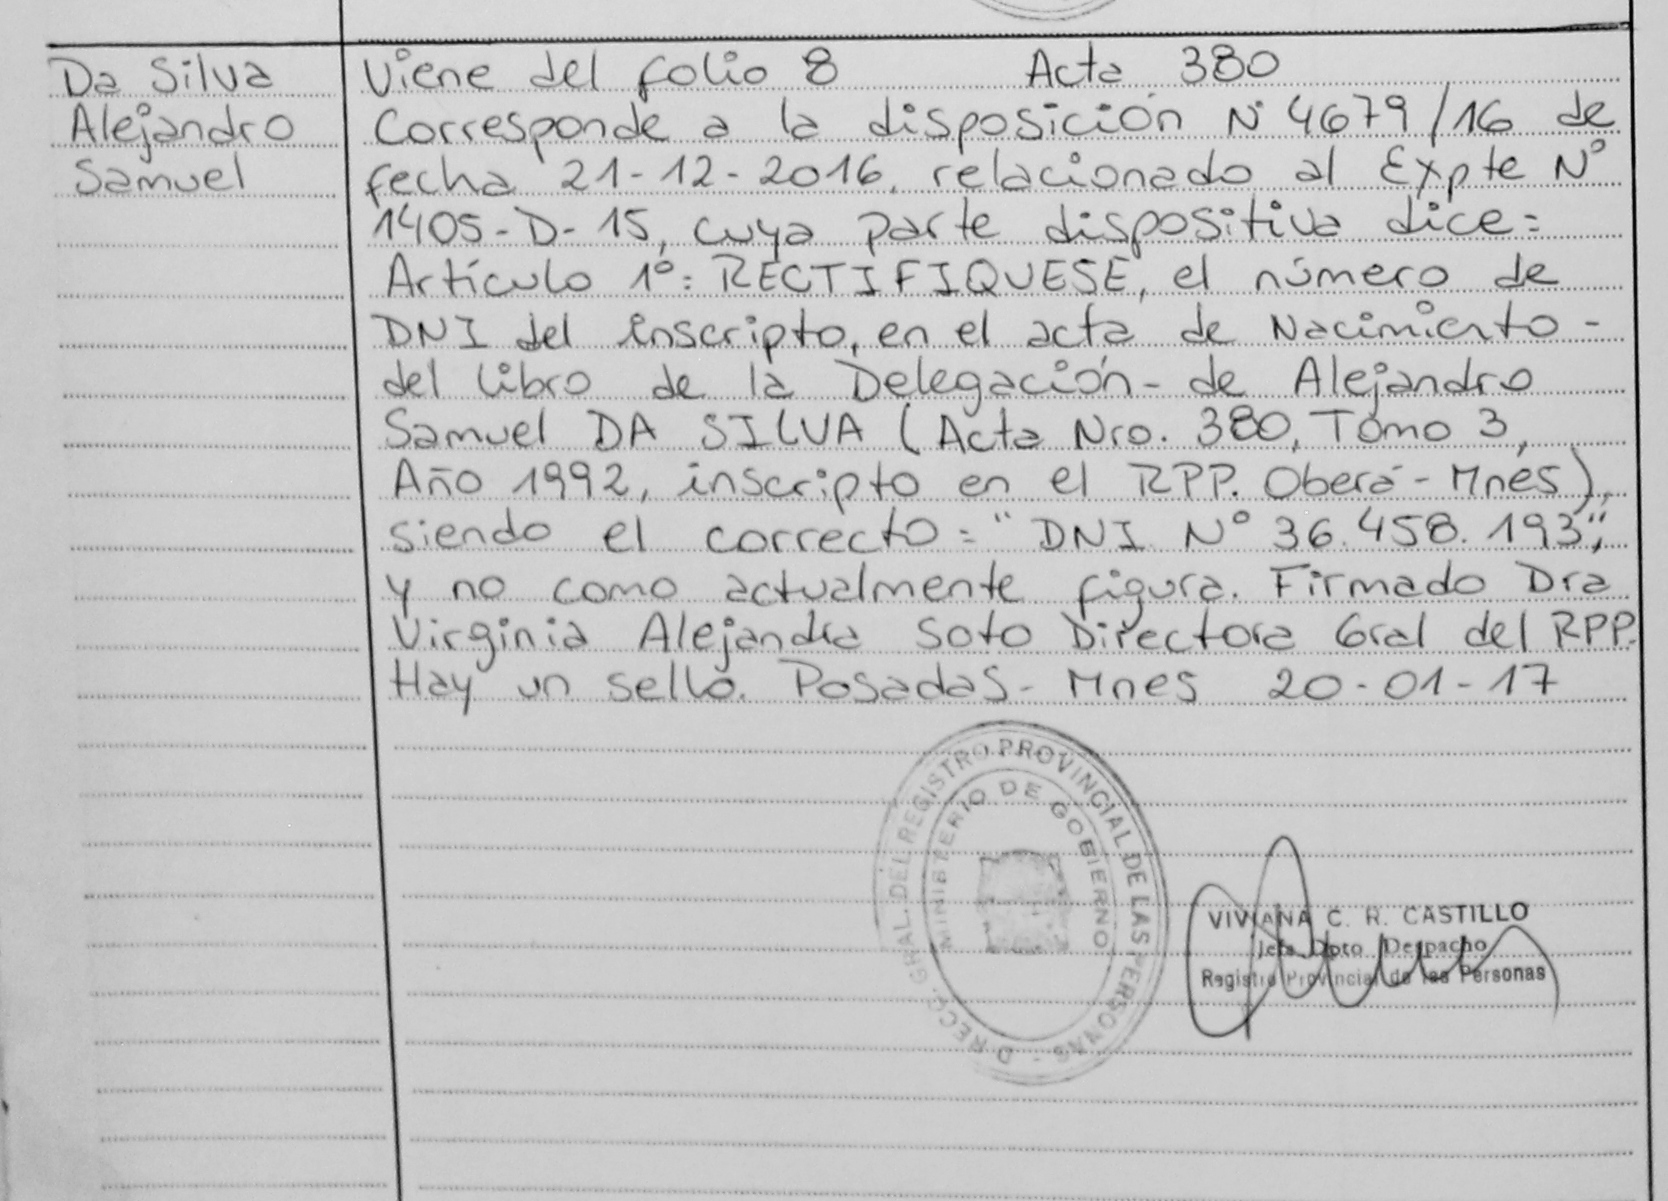 Da Silva
Alejandro
Samuel
Viene del folio 8 Acta 380
Corresponde a la disposición N° 4679/16 de
fecha 21-12-2016, relacionado al Expte N°
1405-D-15, cuya parte dispositiva dice:
Artículo 1º: RECTIFIQUESE, el número de
DNI del inscripto, en el acta de Nacimiento -
del libro de la Delegación - de Alejandro
Samuel DA SILVA (Acta Nro. 380, Tomo 3,
Año 1992, inscripto en el RPP. Oberá - Mnes),
siendo el correcto: "DNI N° 36.458.193",
y no como actualmente figura. Firmado Dra
Virginia Alejandra Soto Directora Gral del RPP.
Hay un sello. Posadas - Mnes 20-01-17
DIRECC. GRAL. DEL REGISTRO PROVINCIAL DE LAS PERSONAS -
MINISTERIO DE GOBIERNO
VIVIANA C. R. CASTILLO
Jefa Dpto Despacho
Registro Provincial de las Personas